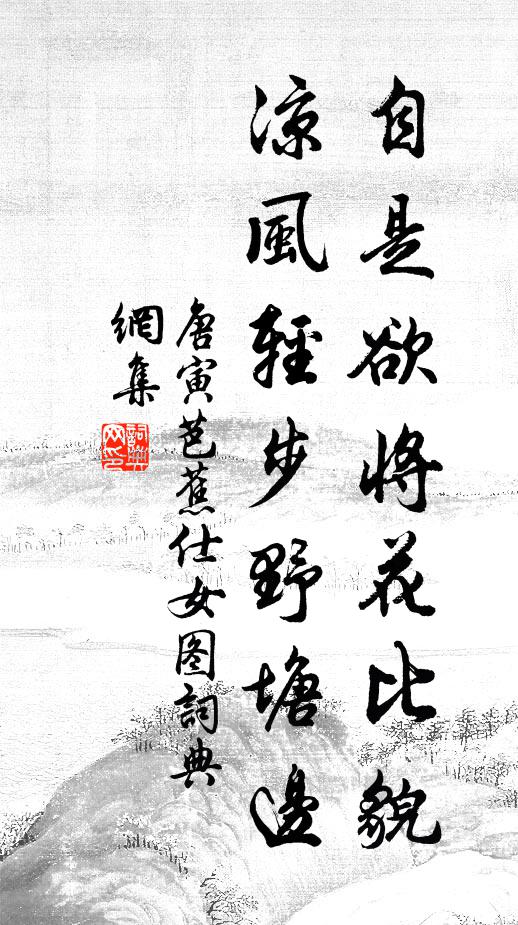 自是欲將花比貌
涼風輕步野塘邊
唐寅芭蕉仕女图詞典
網集